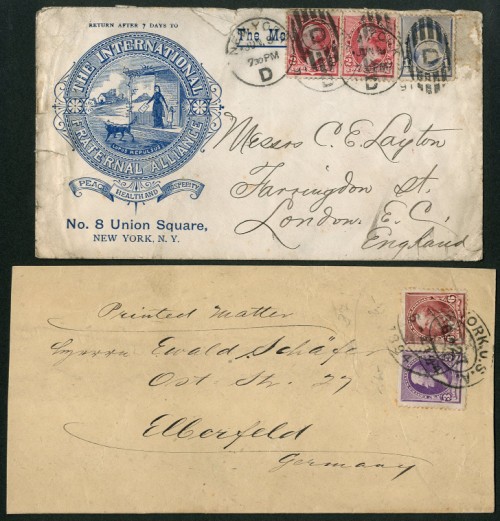 RETURN AFTER 7 DAYS TO
The
THE INTERNATIONAL
FRATERNAL ALLIANCE
PEACE HEALTH AND PROSPERITY
No. 8 Union Square,
NEW YORK, N. Y.
730 PM
D
D
D
D
Messrs C. E. Layton
Farringdon St.
London. E. C.
England
Printed Matter
Herrn Ewald Schäfer
Ost. Str. 27
Elberfeld
Germany
YORK U.S.A.